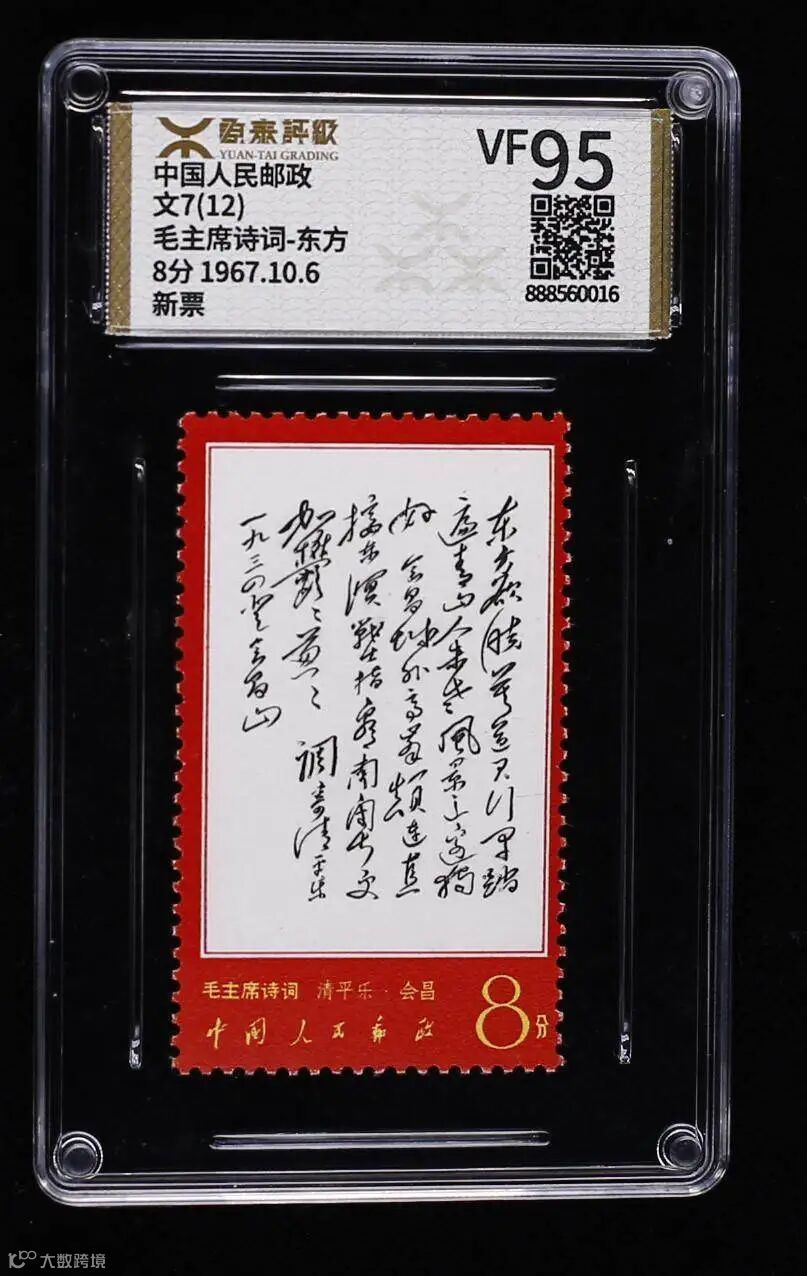 原泰評級
YUAN-TAI GRADING
中国人民邮政
文7(12)
毛主席诗词-东方
8分 1967.10.6
新票
VF95
888560016
东方欲晓莫道君行早踏
遍青山人未老风景这边独
好 会昌城外高峰颠连直
接东溟戰士指看南粤更
加鬱〻葱〻 调寄清平乐
一九三四登会昌山
毛主席诗词 清平乐·会昌
中国人民邮政
8分
大数跨境